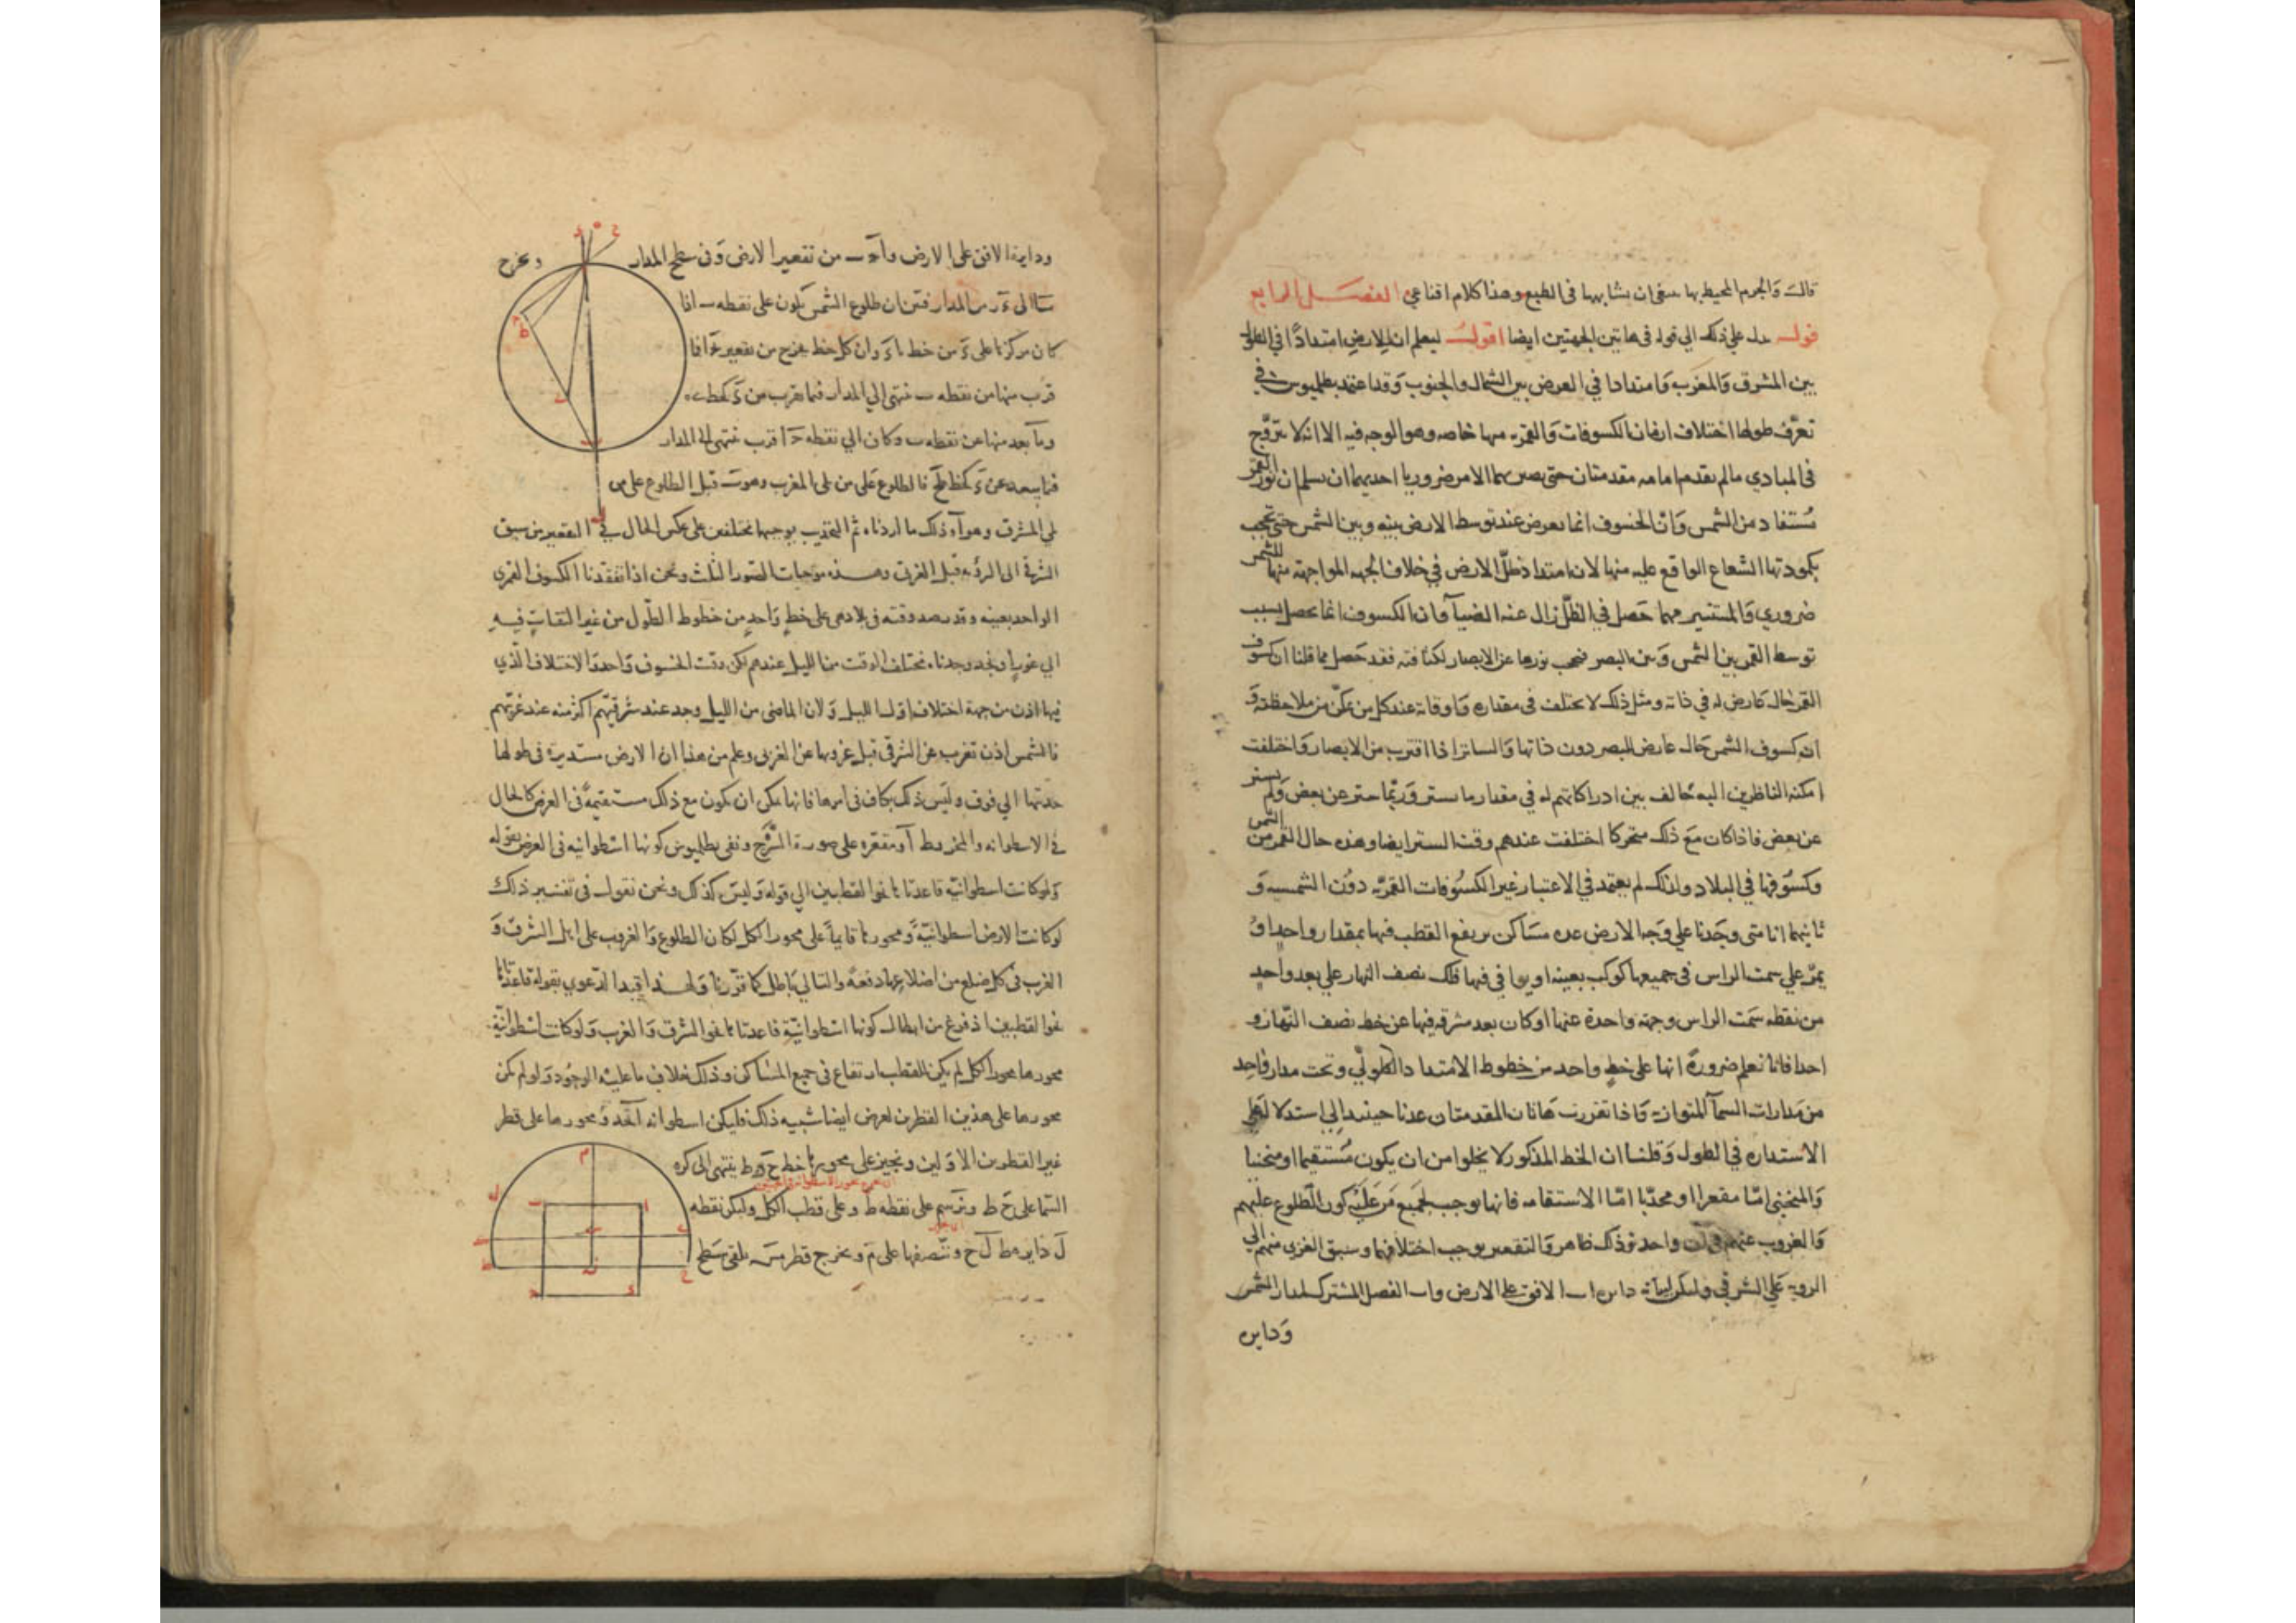 قال والجرم المحيط بها ينبغى ان يشابهها فى الطبع وهذا كلام اقناعي الفصل الرابع
قوله يدل على ذلك الي قوله فى هاتين الجهتين ايضا اقول ليعلم ان للارض امتدادًا في الطول
بين المشرق وَالمغرب وَامتدادا في العرض بين الشمال والجنوب وَقد اعتمد بطلميوس في
تعرّف طولها اختلاف ازمان الكسوفات وَالقمرية منها خاصه وهو الوجه فيه الا انه لا يتروّج
فى المبادي مالم يقدم امامه مقدمتان حتى يصير بهما الامر ضروريا احديهما ان يسلم ان نور القمر
مُستفاد من الشمس وَانّ الخسوف انما يعرض عند توسط الارض بينه وبين الشمس حتى تحجب
بكمودتها الشعاع الواقع عليه منها لان امتداد ظلّ الارض في خلاف الجهه المواجهة منها للشمس
ضروري وَالمستنير مهما حَصل في الظلّ زال عنه الضيآ وَان الكسوف انما يحصل بسبب
توسط القمر بين الشمس وَبين البصر فيحجب نورها عن الابصار لكثافته فقد حَصل مما قلنا ان كسوف
القمر حال عارض له في ذاته ومثل ذلك لا يختلف فى مقداره وَاوقاته عند كل من تمكّن من ملاحظته وَ
ان كسوف الشمس حَال عارض للبصر دون ذاتها وَالساتر اذا اقترب من الابصار وَاختلفت
امكنة الناظرين اليه خالف بين ادراكاتهم له في مقدار ما يستر وَربّما ستر عن بعض وَلم يستر
عن بعض فاذا كان مَع ذلك متحركا اختلفت عندهم وقت الستر ايضا وهذه حال القمر من الشمس
وكسُوفها في البلاد ولذلك لم يعتمد في الاعتبار غير الكسُوفات القمريّه دوُن الشمسيه وَ
ثانيهما انا متى وجَدنا علي وَجه الارض عده مسَاكن يرتفع القطب فيها بمقدار واحد اوُ
يمرّ علي سمت الراس فى جميعها كوكب بعينه او يوافي فيها فلك نصف النهار علي بعد واحدٍ
من نقطه سَمت الراس وجهة واحدة عنها او كان بعد مشرقه فيها عن خط نصف النّهار و
احدا فانا نعلم ضرورةً انها على خطٍ واحد من خطوط الامتداد الطولّي وتحت مدار وَاحِد
من مَدارات السمآ المتوازية وَاذا تقررت هَاتان المقدمتان عدنا حينئذ الى استدلاله علي
الاستداره في الطول وَقلنا ان الخط المذكور لا يخلوا من ان يكون مُستقيما او منحنيا
وَالمنحنى امّا مقعرا او محدّبا امّا الاستقامه فانها يوجب لجَميع مَن عَلَيْه كون الطلوع عليهم
وَالغروب عنهم في آن واحد وَذلك ظاهر وَالتقعير يوجب اختلافهما وسبق الغربى منهم الي
الروية علي الشرقي وليكن لبيانه دايره ا ب الافق على الارض و ا ب الفصل المشترك لمدار الشمس
وَدايره
ودايرة الافق على الارض و ا ح ب من تقعير الارض وَفى سطح المدار ونخرج
كان مركزنا على
قرب منها من نقطه ب ينتهى الي المدار فيما يقرب من
وما بعد منها عن نقطه ب وكان الي نقطه ا اقرب ينتهى الى المدار
فيما يبعد عن فالطلوع على من يلى المغرب وهو قبل الطلوع على من
يلي المشرق وهو ذلك ما اردناه ثم التحديب يوجبهما مختلفين على عكس الحال في التقعير من سبق
الشرقى الى الرؤية قبل الغربى وهذه موجبات الصور الثلث ونحن اذا تفقدنا الكسوف القمرى
الواحد بعينه وقد رصد وقته فى بلاد هى على خطٍ وَاحدٍ من خطوط الطّول من غير التفاتٍ فيهِ
الي غروبٍ او وجدناه مختلف الوقت من الليل عندهم لكن وقت الخسوف وَاحد وَالاختلاف الّذي
فيها اذن من جهة اختلاف اوّل الليل وَلان الماضى من الليل وجد عند شرقيّهم اكثر منه عند غربيّهم
فالشمس اذن تغرب عن الشرقى قبل غروبها عن الغربى وعلم من هذا ان الارض مستديرة فى طولها
حدبتها الي فوق وليس ذلك بكاف فى امرها فانها يمكن ان يكون مع ذلك مستقيمةً فى العرض كالحال
في الاسطوانه والمخروط او مقعره على صورة السَّرج ونفى بطلميوس كونها اسطوانيه فى العرض بقوله
وَلو كانت اسطوانيّه قاعدتاها نحو القطبين الي قوله وَليس كذلك ونحن نقول فى تفسير ذلك
لو كانت الارض اسطوانيّة وَمحورها قايماً على محور الكل لكان الطلوع وَالغروب على اهل الشرق وَ
الغرب فى كل ضلع من اضلاعها دفعةً والتالي بَاطل كما قرّرنا وَلهذا قيد الدّعوي بقوله قاعدتاها
نحو القطبين اذ فرغ من ابطال كونها اسطوانيّة قاعدتاها نحو المشرق وَالمغرب وَلو كانت اسْطوانيّة
محورها محور الكل لم يكن للقطب ارتفاع فى جميع المسَاكن وذلك خلاف ما عليْه الوجُود وَلو لم يكن
محورها على هذين القطرين لعرض ايضا شبيه ذلك فليكن اسطوانه ا ب ح د وَمحورها على قطر
غير القطرين الاوّلين ونجيز على محورها خط ح ط ينتهى الى كره
السّما على ح ط ونرسم على نقطه ط وعلى قطب الكلّ وليكن نقطه
ل دايره ط ل ح وننصفها على م ونخرج قطر يلقى سَطح